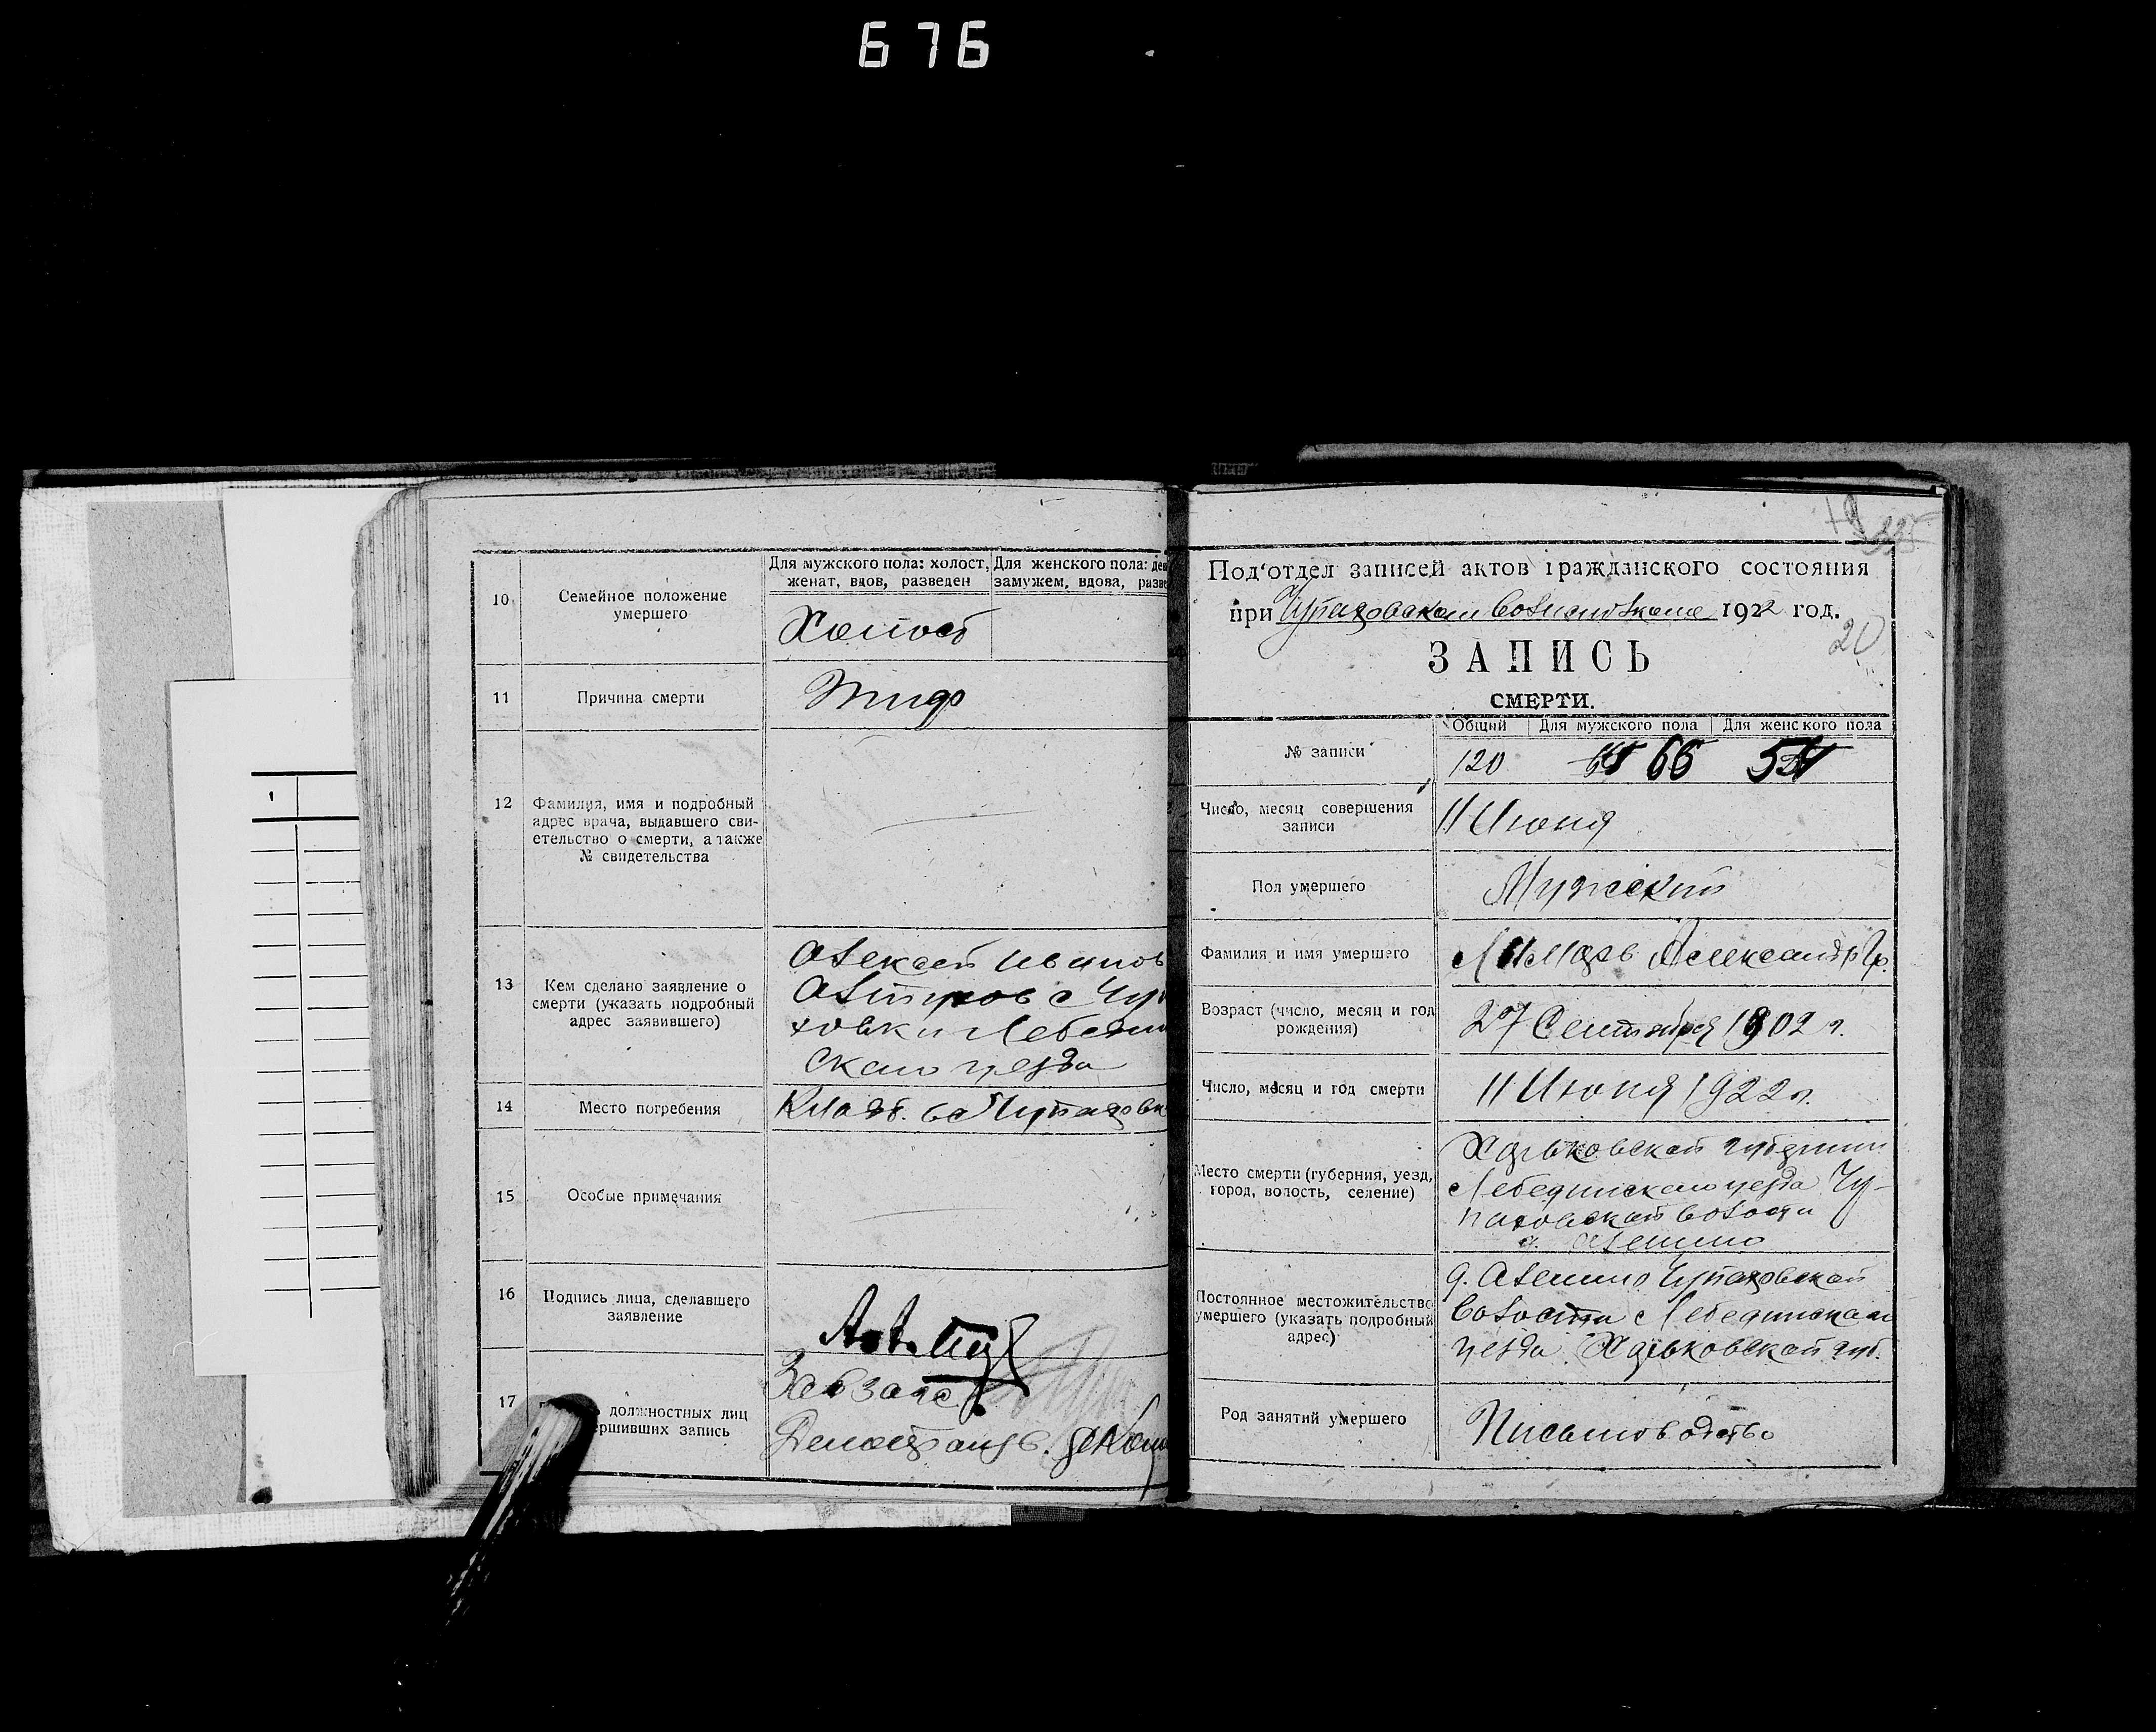 676
10
Семейное положение
умершего
Для мужского пола: холост,
женат, вдов, разведен
Для женского пола: дев
замужем, вдова, разве
Холост
11
Причина смерти
Тиф
12
Фамилия, имя и подробный
адрес врача, выдавшего сви-
етельство о смерти, а также
№ свидетельства
13
Кем сделано заявление о
смерти (указать подробный
адрес заявившего)
Алексей Иванов
с Чуп
ховки Лебедин
ского уезда
14
Место погребения
Кладб. Чупаховк
15
Особые примечания
16
Подпись лица, сделавшего
заявление
17
должностных лиц
ершивших запись
Завзагс
Делопроизв.
335
Под'отдел записей актов гражданского состояния
при Чупаховском Волисполкоме 1922 год.
20
ЗАПИСЬ
СМЕРТИ.
№ записи
Общий
Для мужского пола
Для женского пола
120
66
54
Число, месяц совершения
записи
11 Июня
Пол умершего
Мужской
Фамилия и имя умершего
Лимарь Александр Гр.
Возраст (число, месяц и год
рождения)
27 Сентября 1902 г.
Число, месяц и год смерти
11 Июня 1922 г.
Место смерти (губерния, уезд,
город, волость, селение)
Харьковской губернии
Лебединского уезда Чу-
паховской волости
Постоянное местожительство
умершего (указать подробный
адрес)
Чупаховской
волости Лебединского
уезда Харьковской губ.
Род занятий умершего
Письмоводство
1